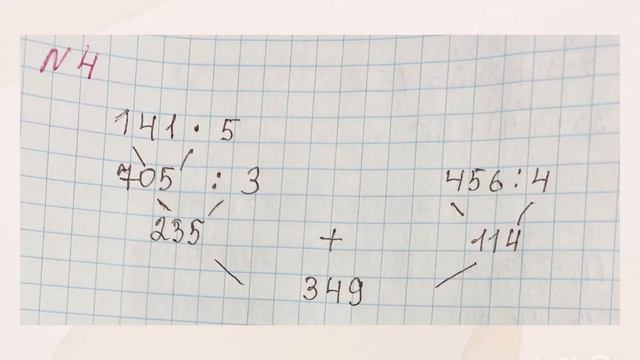 N 4
141 · 5
705 : 3 456 : 4
235 + 114
349